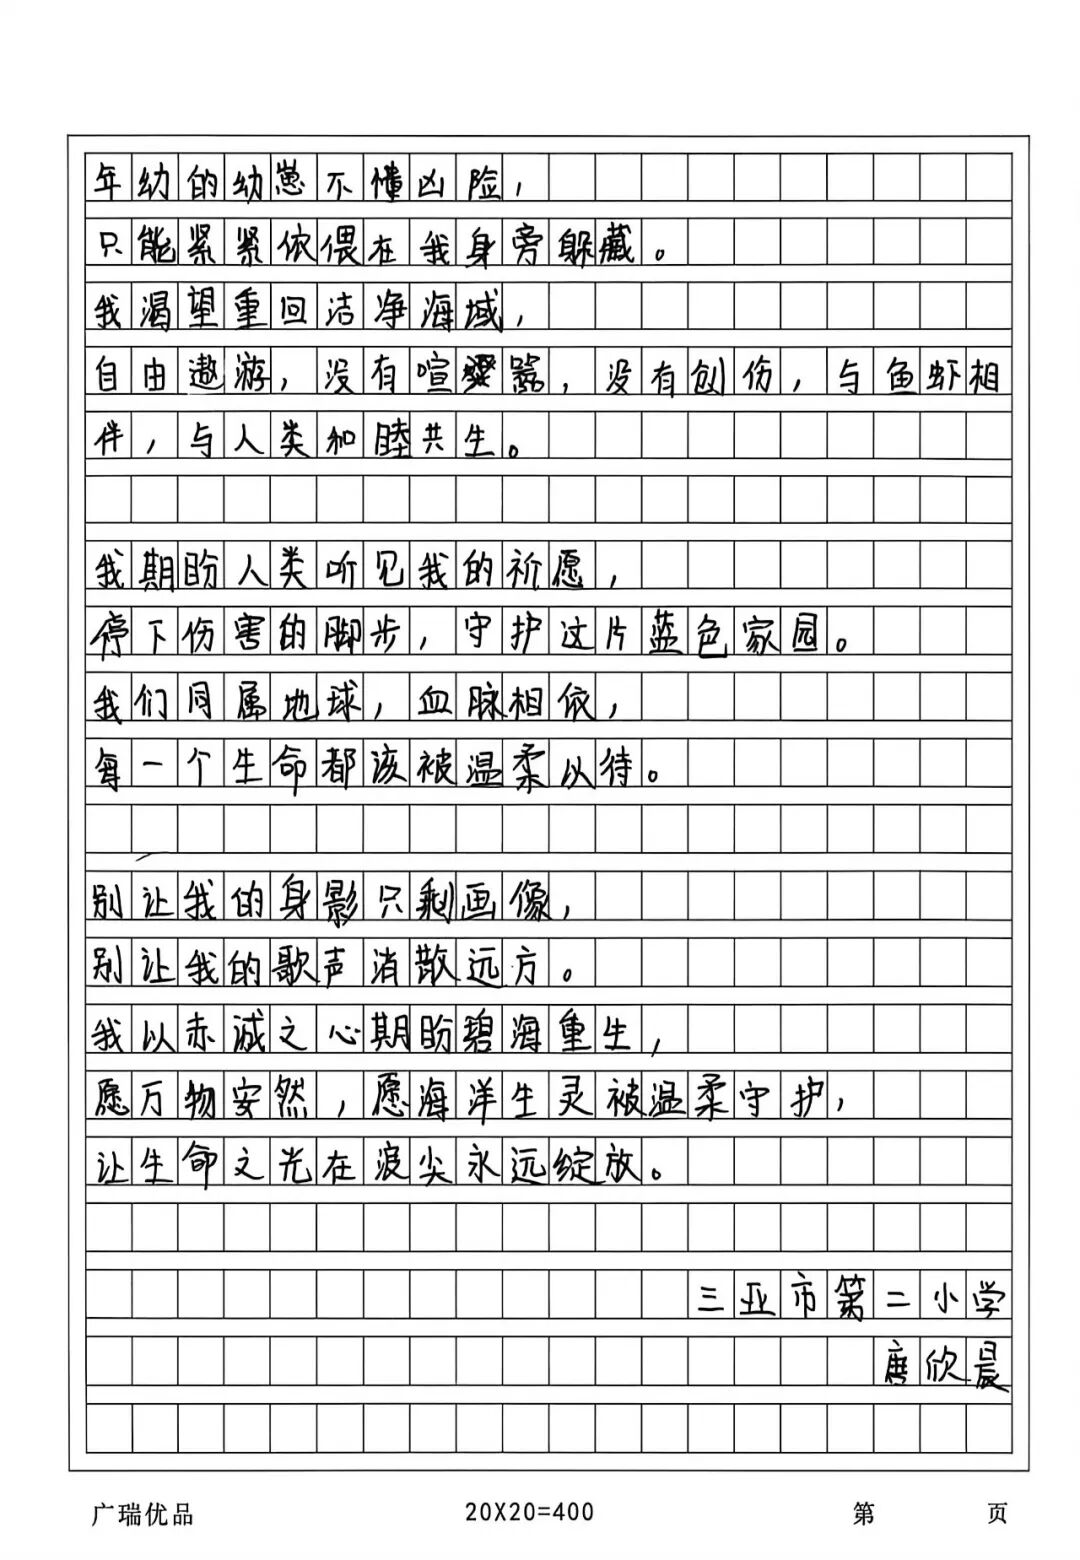 年幼的幼崽不懂凶险，
只能紧紧依偎在我身旁躲藏。
我渴望重回洁净海域，
自由遨游，没有喧嚣，没有创伤，与鱼虾相
伴，与人类和睦共生。
我期盼人类听见我的祈愿，
停下伤害的脚步，守护这片蓝色家园。
我们同属地球，血脉相依，
每一个生命都该被温柔以待。
别让我的身影只剩画像，
别让我的歌声消散远方。
我以赤诚之心期盼碧海重生，
愿万物安然，愿海洋生灵被温柔守护，
让生命之光在浪尖永远绽放。
三亚市第二小学
唐欣晨
广瑞优品 20X20=400 第 页